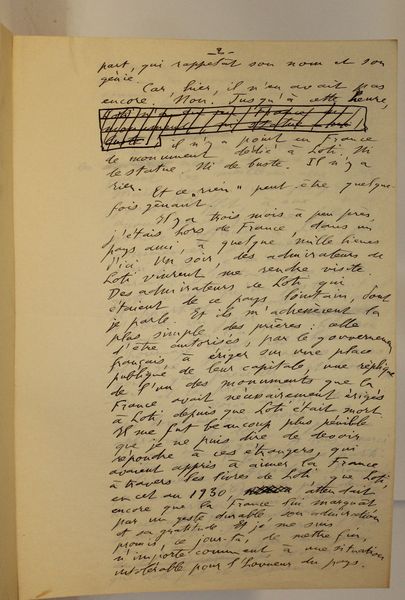 - 2 -
part, qui rappelât son nom et son
génie.
Car, hier, il n'en avait pas
encore. Non. Jusqu'à cette heure,
il n'y a point en France
de monument dédié à Loti. Ni
de statue. Ni de buste. Il n'y a
rien. Et ce "rien" peut être quelque-
fois gênant.
Il y a trois mois à peu près,
j'étais hors de France, dans un
pays ami, à quelque mille lieues
d'ici. Un soir, des admirateurs de
Loti vinrent me rendre visite.
Des admirateurs de Loti qui
étaient de ce pays lointain, dont
je parle. Et ils m'adressèrent la
plus simple des prières : celle
d'être autorisés, par le gouvernement
français à ériger sur une place
publique de leur capitale, une réplique
de l'un des monuments que la
France avait nécessairement érigés
à Loti, depuis que Loti était mort.
Il me fut beaucoup plus pénible
que je ne puis dire de devoir
répondre à ces étrangers, qui
avaient appris à aimer la France
à travers les livres de Loti, que Loti,
en cet an 1930, attendait
encore que la France lui marquât
par un geste durable, son admiration
et sa gratitude. Et je me suis
promis, ce jour-là, de mettre fin,
n'importe comment, à une situation
intolérable pour l'honneur du pays.